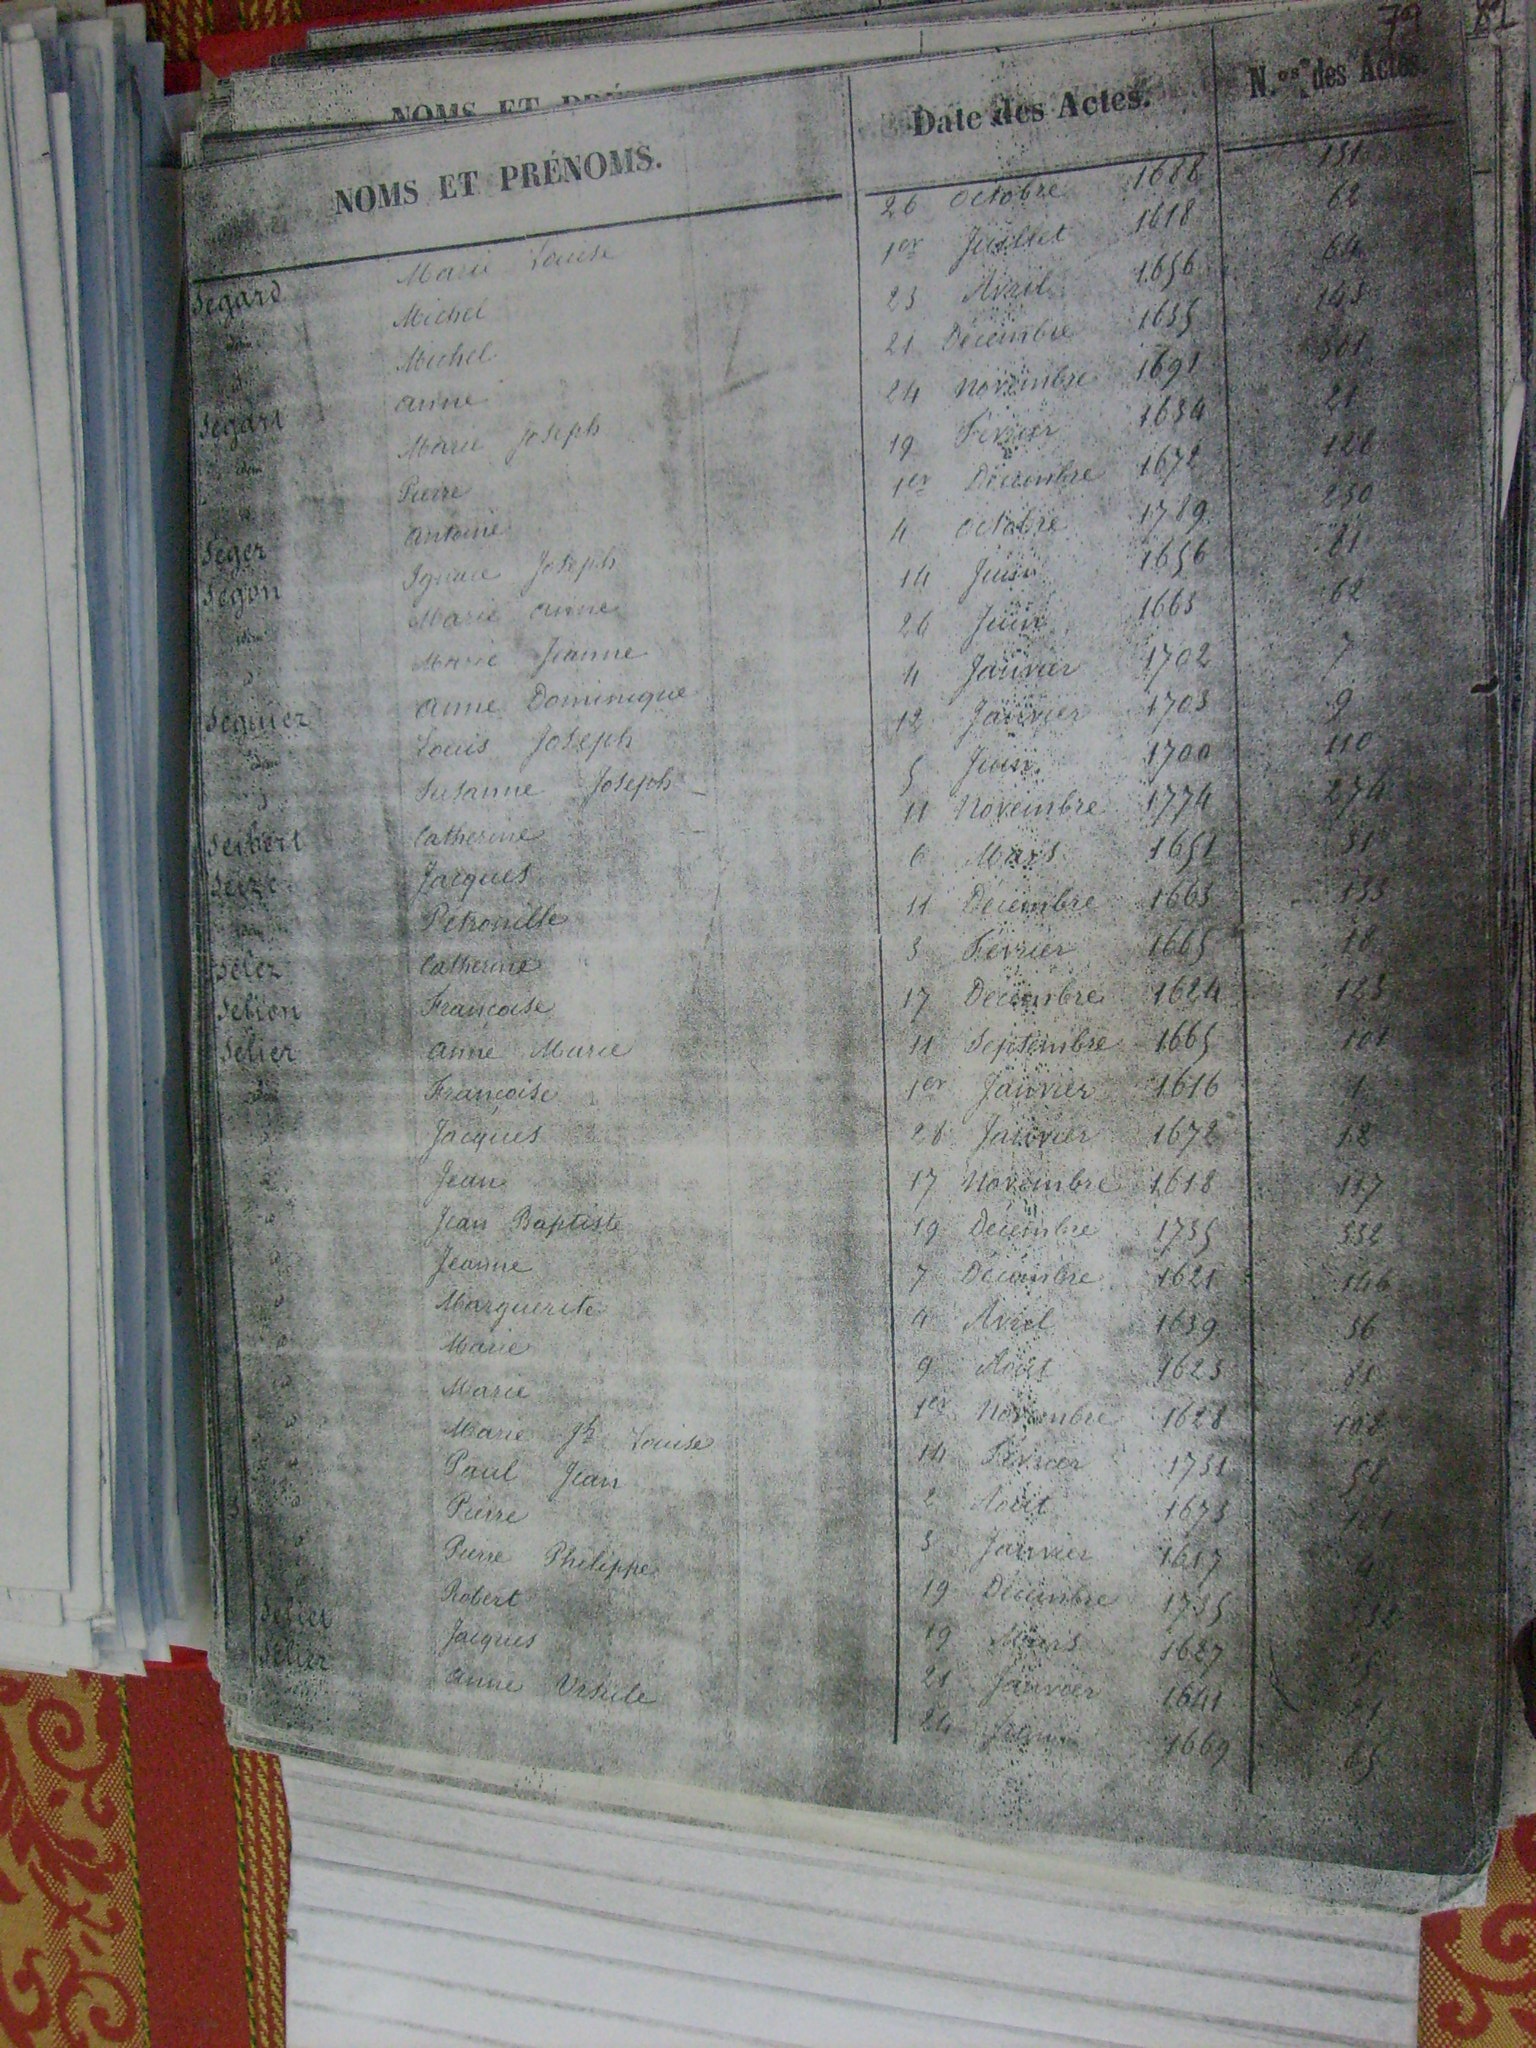 79 82
NOMS ET PRÉ
NOMS ET PRÉNOMS. Date des Actes. N.os des Actes.
Segard Marie Louise 26 Octobre 1688 151
idem Michel 1er Juillet 1618 62
d Michel 23 Avril 1656 64
Segart Anne 21 Décembre 1635 143
idem Marie Joseph 24 Novembre 1691 301
Pierre 19 Février 1634 21
Seger Antoine 1er Décembre 1672 128
Segon Ignace Joseph 4 Octobre 1789 230
idem Marie Anne 14 Juin 1656 81
d Marie Jeanne 26 Juin 1663 62
Seguiez Anne Dominique 4 Janvier 1702 7
idem Louis Joseph 12 Janvier 1703 9
d Susanne Joseph 5 Juin 1700 110
Seibert Catherine 11 Novembre 1774 274
Seize Jacques 6 Mars 1651 31
idem Petronille 11 Décembre 1663 133
Selez Catherine 3 Février 1665 18
Selion Francoise 17 Décembre 1624 123
Selier Anne Marie 11 Septembre 1665 101
idem Françoise 1er Janvier 1616 1
d Jacques 28 Janvier 1672 12
d Jean 17 Novembre 1618 117
d Jean Baptiste 19 Décembre 1735 332
d Jeanne 7 Décembre 1621 146
d Marguerite 4 Avril 1639 36
d Marie 9 Aout 1623 81
d Marie 1er Novembre 1628 108
d Marie Jh Louise 14 Février 1731 58
d Paul Jean 2 Aout 1673 121
d Pierre 3 Janvier 1617 4
d Pierre Philippe 19 Décembre 1735 332
Robert 19 Mars 1627 25
Selier Jacques 21 Janvier 1641 21
Sélier Anne Ursule 24 Juin 1669 65